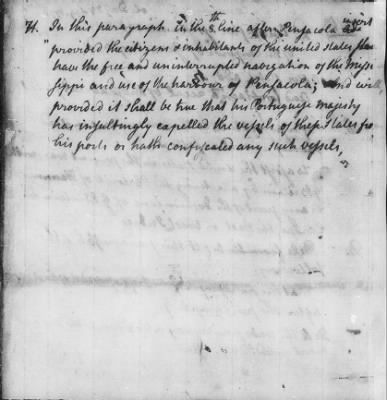 H. In this paragraph in the 8th line after Pensacola insert
"provided the citizens & inhabitants of the united states shall
have the free and uninterrupted navigation of the Missi
sippi and use of the harbour of Pensacola; And
provided it shall be true that his Portuguese majesty
has insultingly expelled the vessels of these States fro
his ports or hath confiscated any such vessels,